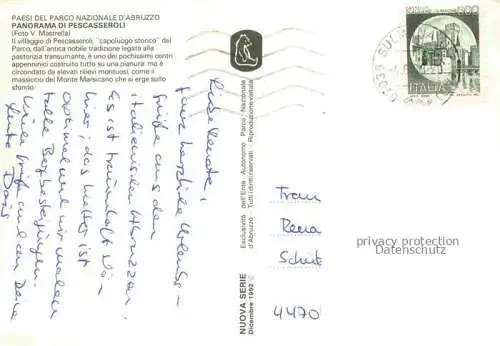 PAESI DEL PARCO NAZIONALE D'ABRUZZO
PANORAMA DI PESCASSEROLI
(Foto V. Mastrella)
Il villaggio di Pescasseroli, "capoluogo storico" del
Parco, dall'antica nobile tradizione legata alla
pastorizia transumante, è uno dei pochissimi centri
appenninici costruito tutto su una pianura: ma è
circondato da elevati rilievi montuosi, come il
massiccio del Monte Marsicano che si erge sullo
sfondo.
Liebe Renate,
ganz herzliche Urlaubs-
grüße aus den
italienischen Abruzzen.
Es ist traumhaft schön
hier, das Wetter ist
optimal und wir machen
tolle Bergbesteigungen.
Liebe Grüße und an Deine
Leute Doris
NUOVA SERIE
Dicembre 1992
Esclusività dell'Ente Autonomo Parco Nazionale
d'Abruzzo Tutti i diritti riservati Riproduzione vietata
ITALIA
67039 SUL
Frau
Rena
Schie
4470
privacy protection
Datenschutz